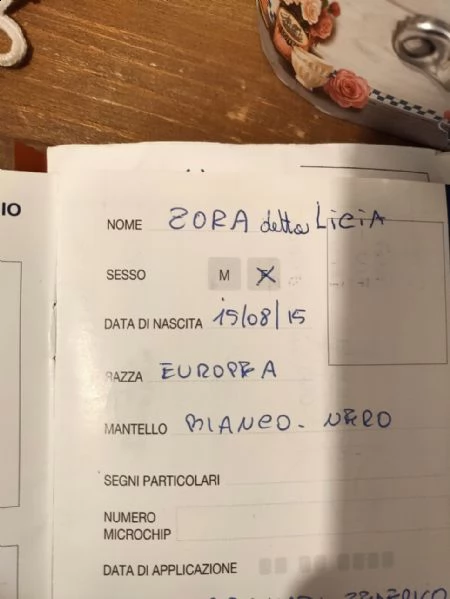 IO
NOME ZORA detta LiciA
SESSO M
DATA DI NASCITA 15/08/15
RAZZA EUROPEA
MANTELLO BIANCO - NERO
SEGNI PARTICOLARI
NUMERO
MICROCHIP
DATA DI APPLICAZIONE